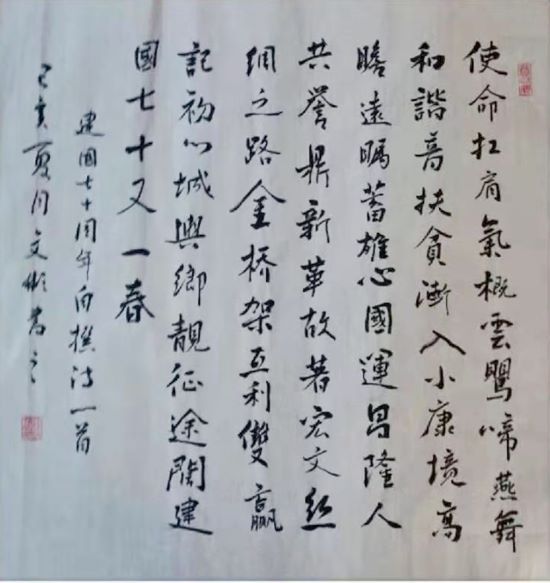 使命扛肩氣概雲鶯啼燕舞
和諧音扶貧漸入小康境高
瞻遠矚蓄雄心國運昌隆人
共譽鼎新革故著宏文絲
綢之路金橋架互利雙贏
記初心城興鄉靚征途闊建
國七十又一春
建國七十周年自撰詩一首
己亥夏月文彬書之